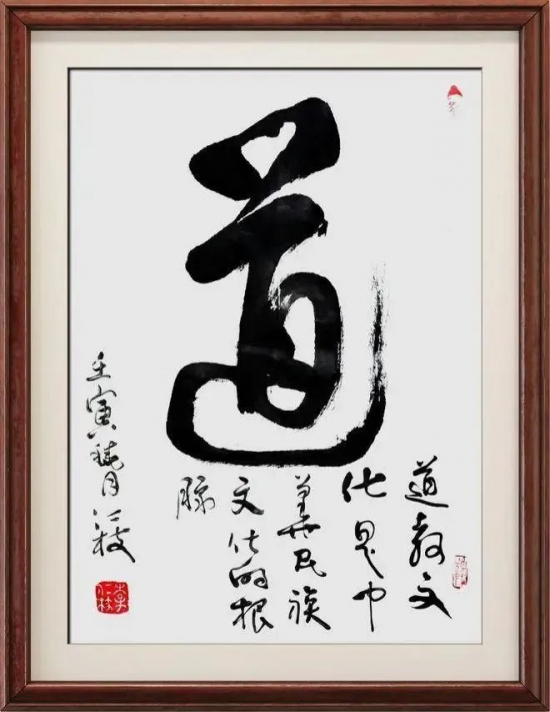 道
道教文
化是中
華民族
文化的根
脉
壬寅
月